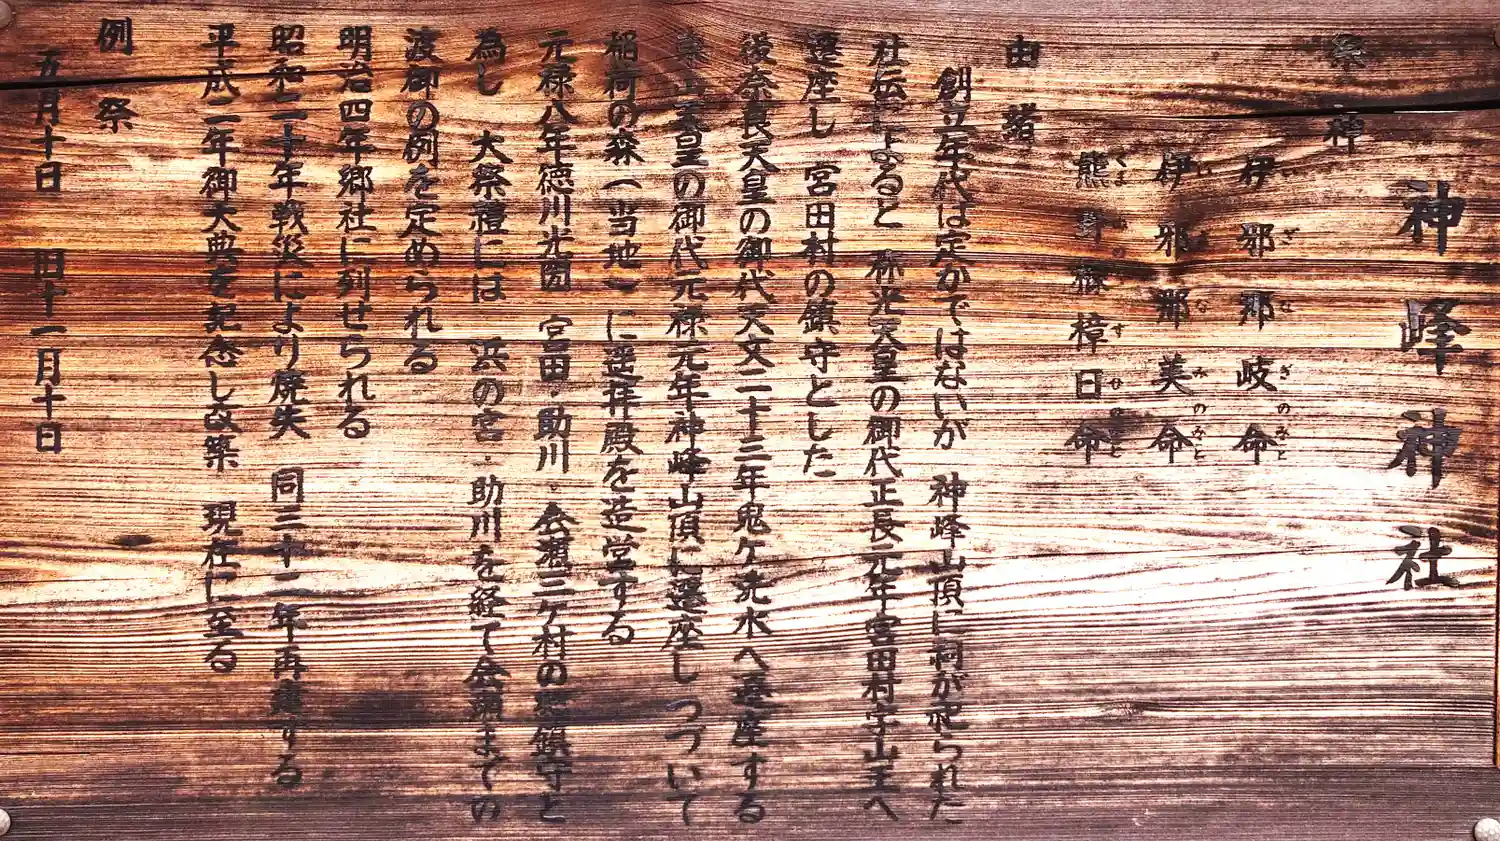 神峰神社
祭神
伊邪那岐命
いざなぎのみこと
伊邪那美命
いざなみのみこと
熊野櫲樟日命
くまのすひのみこと
由緒
創立年代は定かではないが 神峰山頂に祠が祀られた
社伝によると 称光天皇の御代正長元年宮田村字山王へ
遷座し 宮田村の鎮守とした
後奈良天皇の御代天文二十三年鬼ヶ洗水へ遷座する
東山天皇の御代元禄元年神峰山頂に遷座しつづいて
稲荷の森(当地)に遥拝殿を造営する
元禄八年徳川光圀 宮田・助川・会瀬三ヶ村の総鎮守と
為し 大祭禮には 浜の宮・助川を経て会瀬までの
渡御の例を定められる
明治四年郷社に列せられる
昭和二十年戦災により焼失 同三十一年再建する
平成二年御大典を記念し改築 現在に至る
例祭
五月十日 旧十一月十日